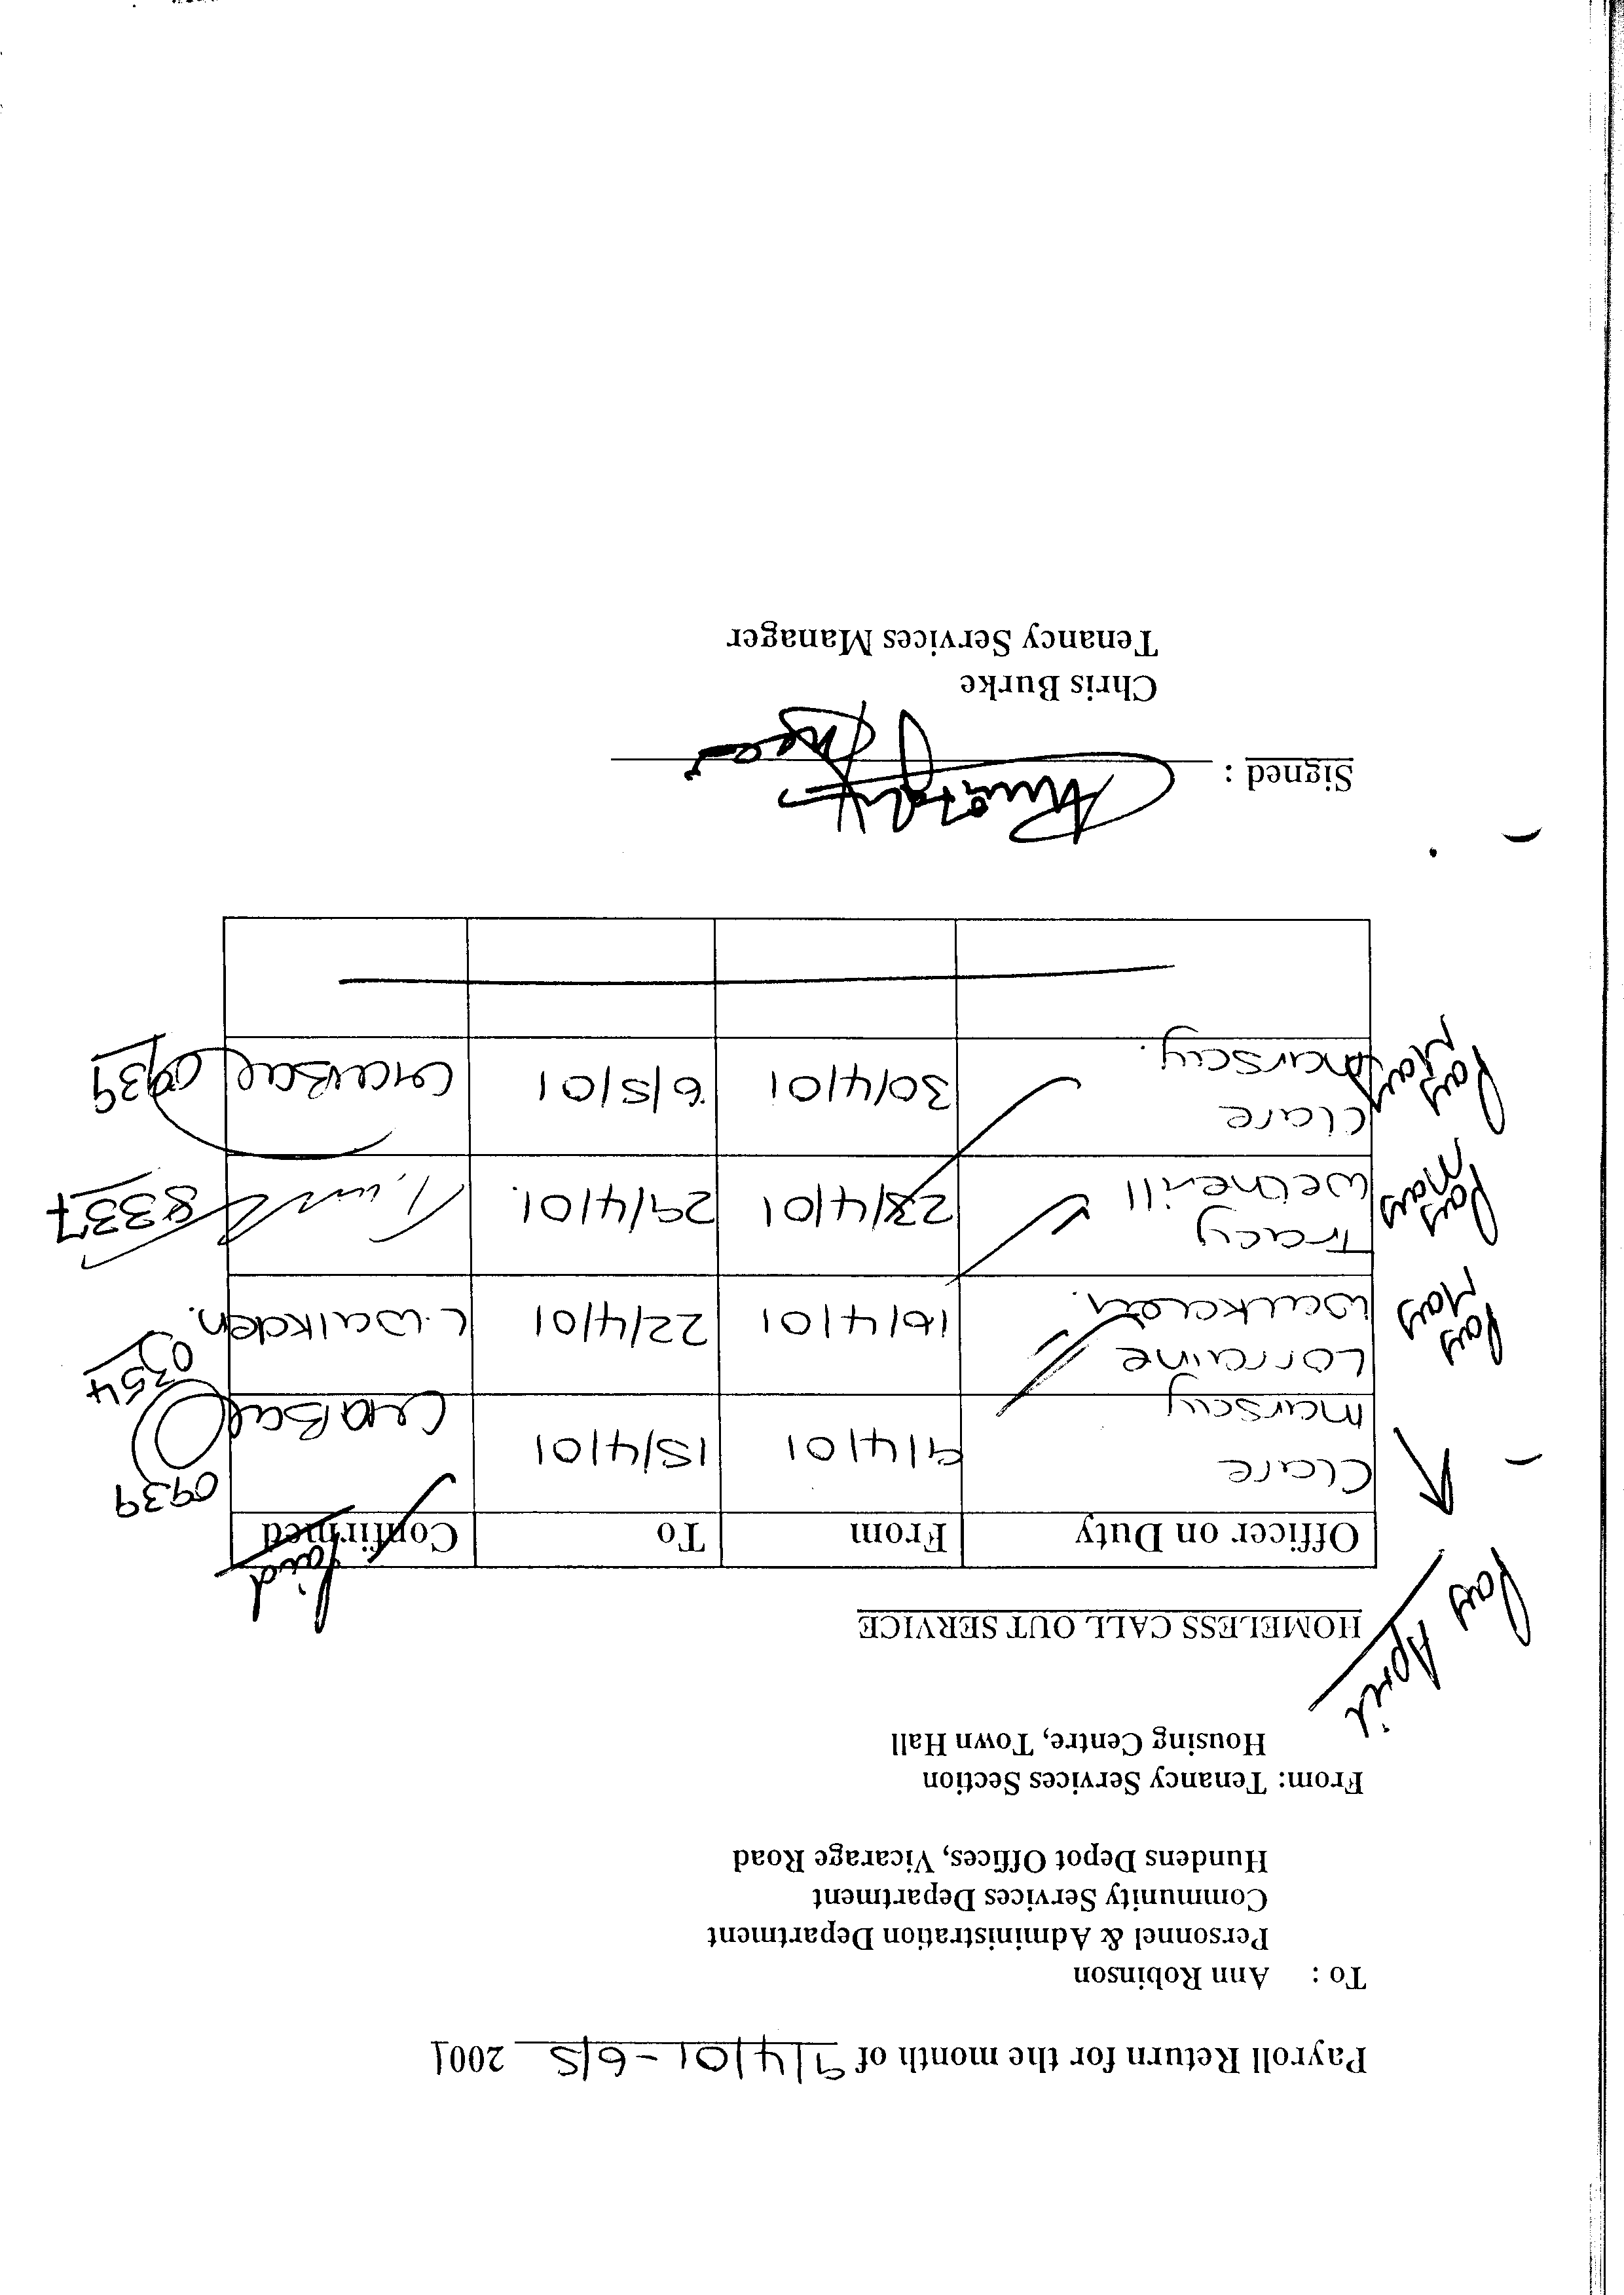 Payroll Return for the month of 9/4/01 - 6/5 2001
To : Ann Robinson
Personnel & Administration Department
Community Services Department
Hundens Depot Offices, Vicarage Road
From: Tenancy Services Section
Housing Centre, Town Hall
Pay April
HOMELESS CALL OUT SERVICE
Paid
Officer on Duty From To Confirmed
Clare Marsay 9/4/01 15/4/01 0939
Pay May Lorraine Walkden. 16/4/01 22/4/01 L. Walkden. 0354
Pay May Tracy Wetherill 23/4/01 29/4/01. 8337
Pay May Clare Marsay. 30/4/01 6/5/01 0939
Signed :
Chris Burke
Tenancy Services Manager